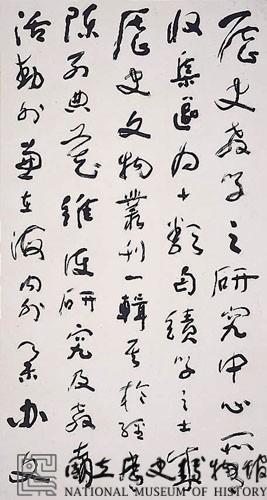 歷史教學之研究中心而
收集逾为十類自績學之士
歷史文物叢刊一輯至於經
陳列典藏維護研究及教
活動外並在海內外舉办文
國立歷史博物館
NATIONAL MUSEUM OF HISTORY